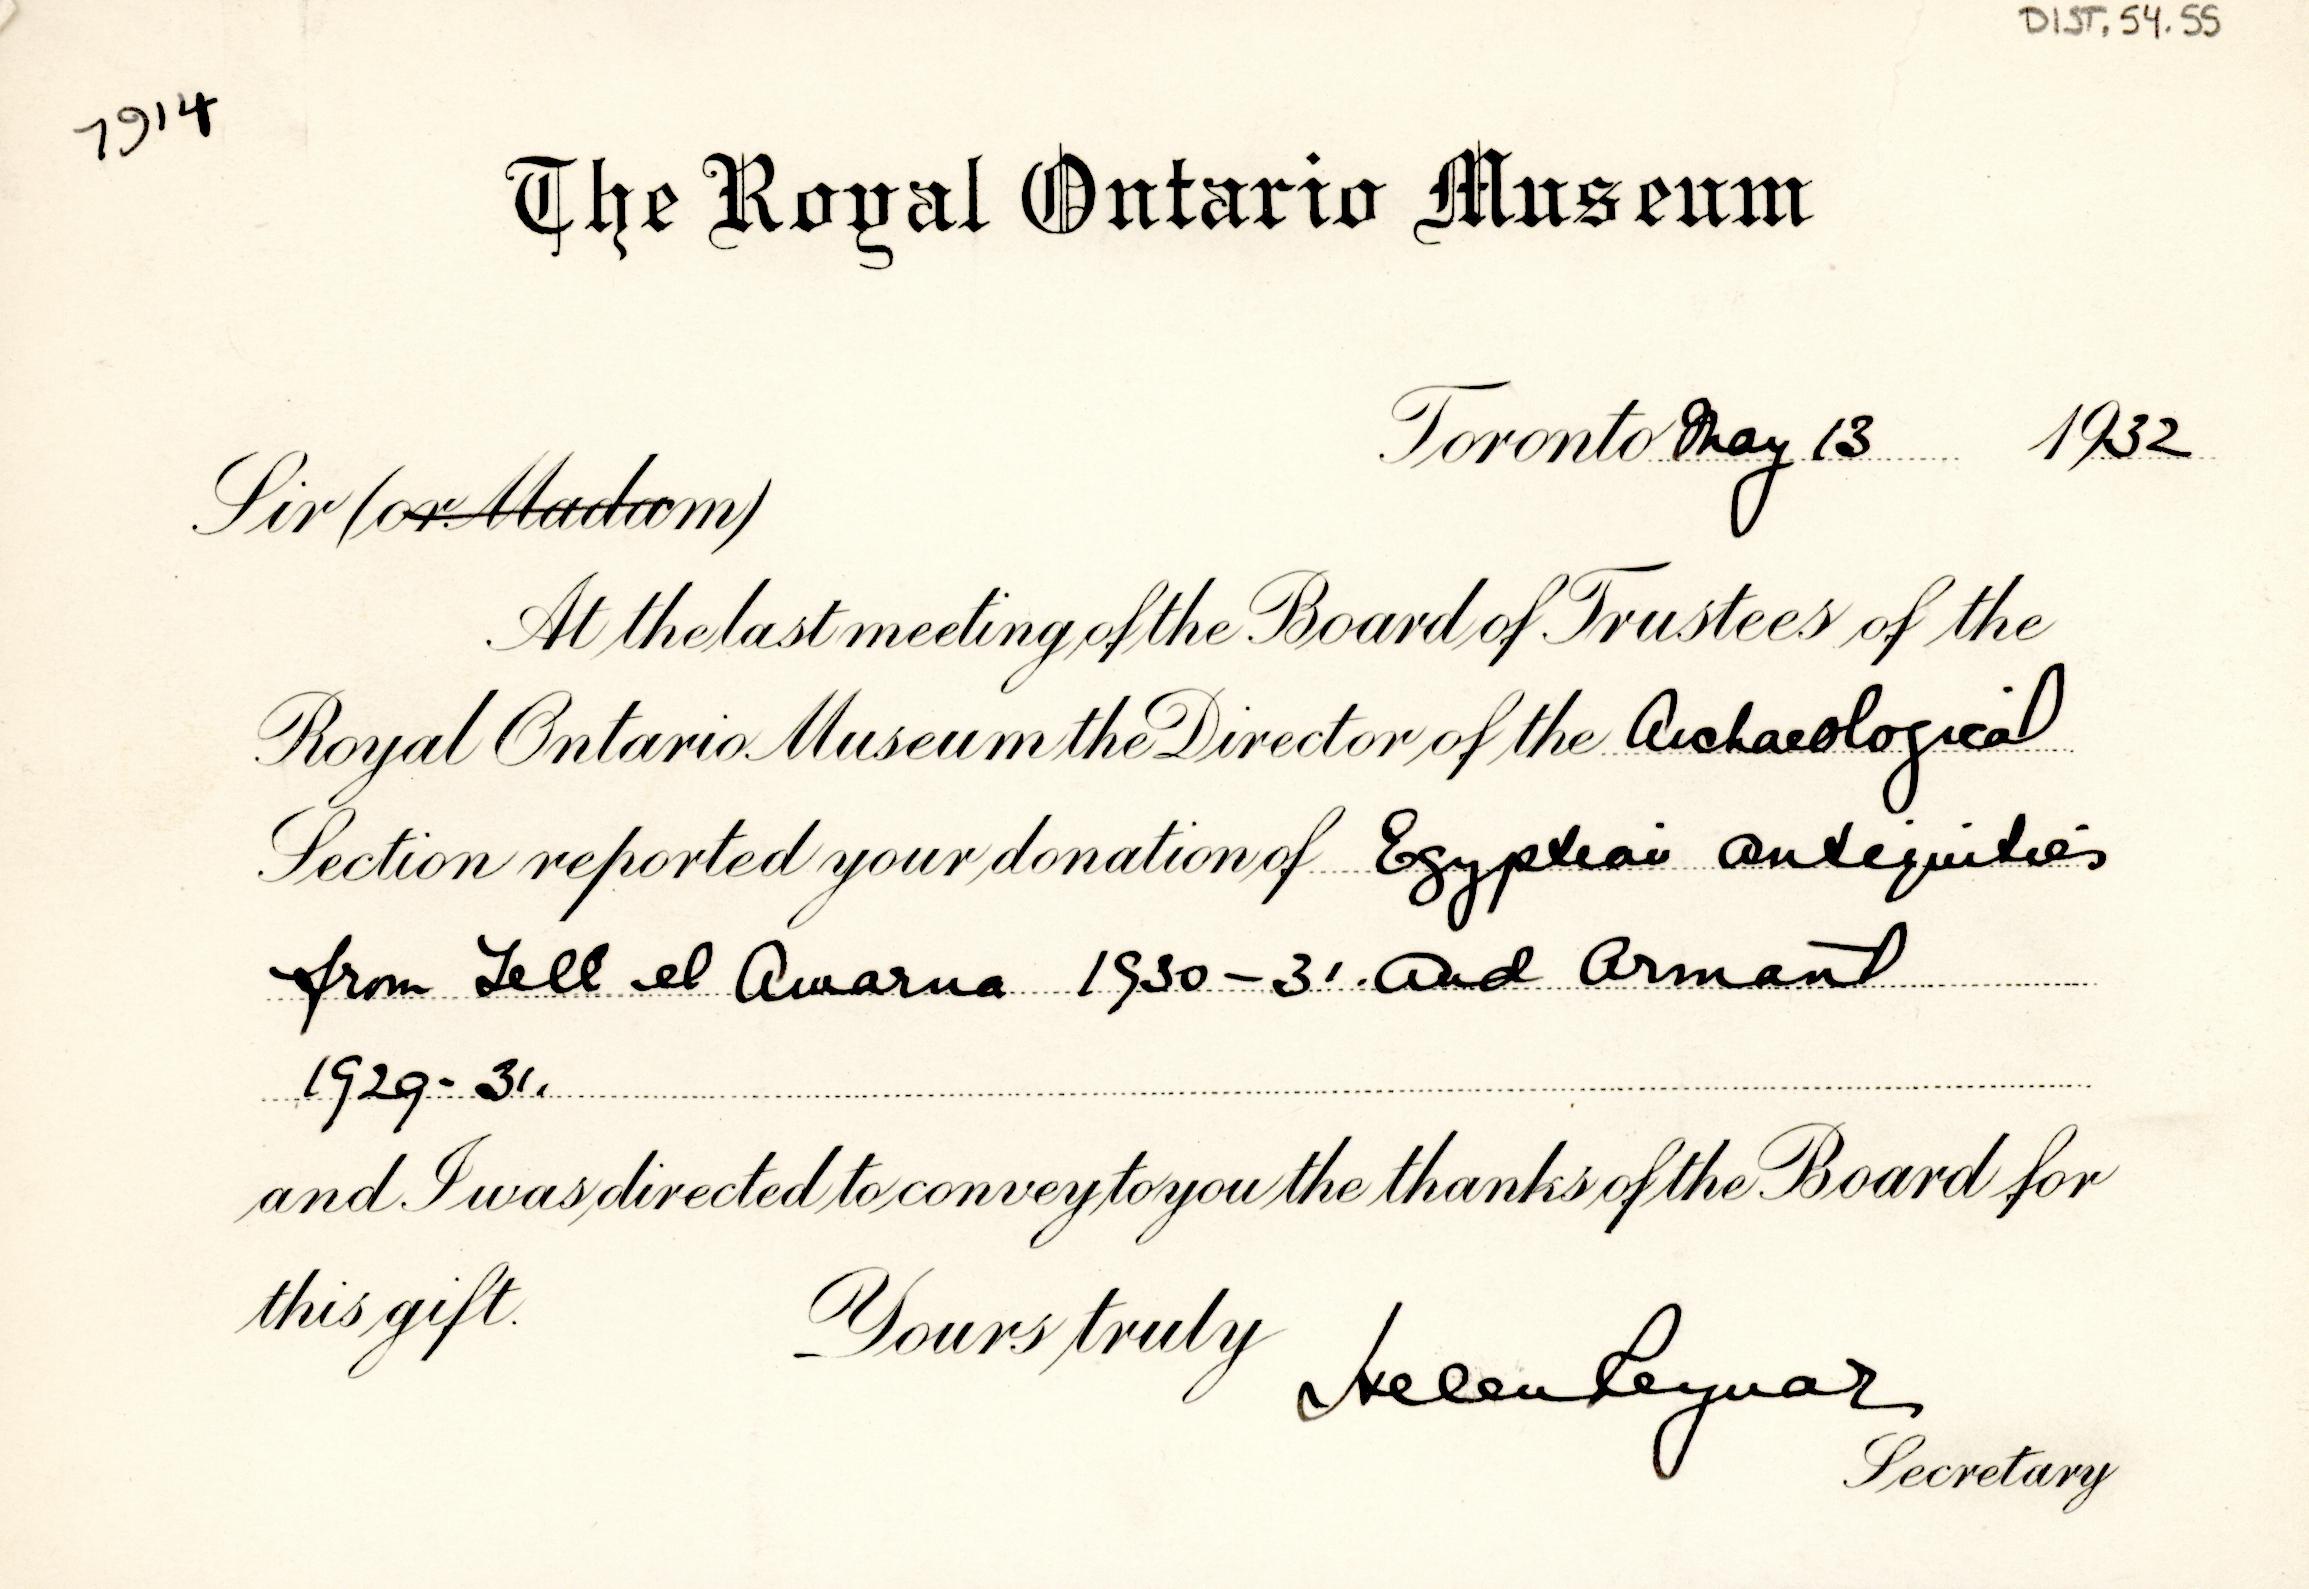 DIST. 54.55
1914
The Royal Ontario Museum
Toronto May 13 1932
Sir (or Madam)
At the last meeting of the Board of Trustees of the
Royal Ontario Museum the Director of the Archaeological
Section reported your donation of Egyptian antiquities
from Tell el Amarna 1930-31. and Armant
1929-31.
and I was directed to convey to you the thanks of the Board for
this gift. Yours truly
Helen
Secretary